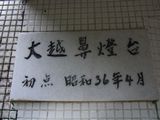 大越鼻燈台
初点 昭和36年4月